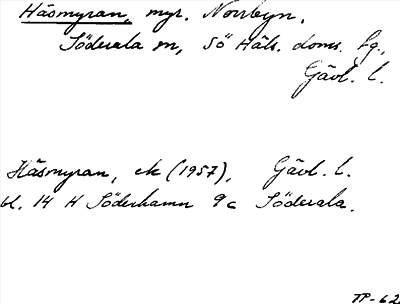 Häsmyran, myr. Norrbyn,
Söderala sn, Sö Häls. doms. fg.,
Gävl. l.
Häsmyran, ek (1957), Gävl. l.
bl. 14 H Söderhamn 9c Söderala.
TP-62